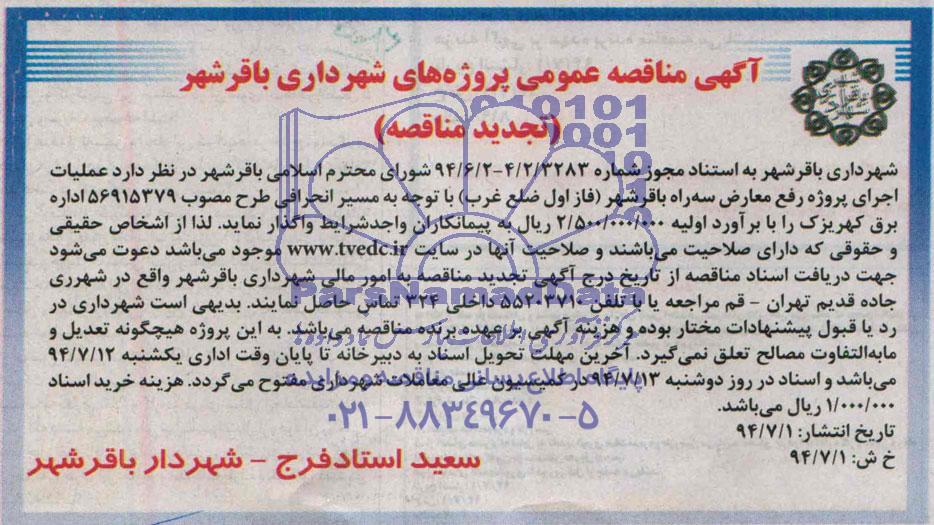 آگهی مناقصه عمومی پروژه‌های شهرداری باقرشهر
(تجدید مناقصه)
شهرداری باقرشهر به استناد مجوز شماره ۴/۲/۳۲۸۳-۹۴/۶/۲ شورای محترم اسلامی باقرشهر در نظر دارد عملیات
اجرای پروژه رفع معارض سه‌راه باقرشهر (فاز اول ضلع غرب) با توجه به مسیر انحرافی طرح مصوب ۵۶۹۱۵۳۷۹ اداره
برق کهریزک را با برآورد اولیه ۲/۵۰۰/۰۰۰/۰۰۰ ریال به پیمانکاران واجدشرایط واگذار نماید. لذا از اشخاص حقیقی
و حقوقی که دارای صلاحیت می‌باشند و صلاحیت آنها در سایت www.tvedc.ir موجود می‌باشد دعوت می‌شود
جهت دریافت اسناد مناقصه از تاریخ درج آگهی تجدید مناقصه به امور مالی شهرداری باقرشهر واقع در شهرری
جاده قدیم تهران - قم مراجعه یا با تلفن ۵۵۲۰۳۷۱۰ داخلی ۳۲۴ تماس حاصل نمایند. بدیهی است شهرداری در
رد یا قبول پیشنهادات مختار بوده و هزینه آگهی بر عهده برنده مناقصه می‌باشد. به این پروژه هیچگونه تعدیل و
مابه‌التفاوت مصالح تعلق نمی‌گیرد. آخرین مهلت تحویل اسناد به دبیرخانه تا پایان وقت اداری یکشنبه ۹۴/۷/۱۲
می‌باشد و اسناد در روز دوشنبه ۹۴/۷/۱۳ در کمیسیون عالی معاملات شهرداری مفتوح می‌گردد. هزینه خرید اسناد
۱/۰۰۰/۰۰۰ ریال می‌باشد.
تاریخ انتشار: ۹۴/۷/۱
خ ش: ۹۴/۷/۱
سعید استادفرج - شهردار باقرشهر
ParsNamadData
پایگاه اطلاع رسانی مناقصه و مزایده
۰۲۱-۸۸۳۴۹۶۷۰-۵